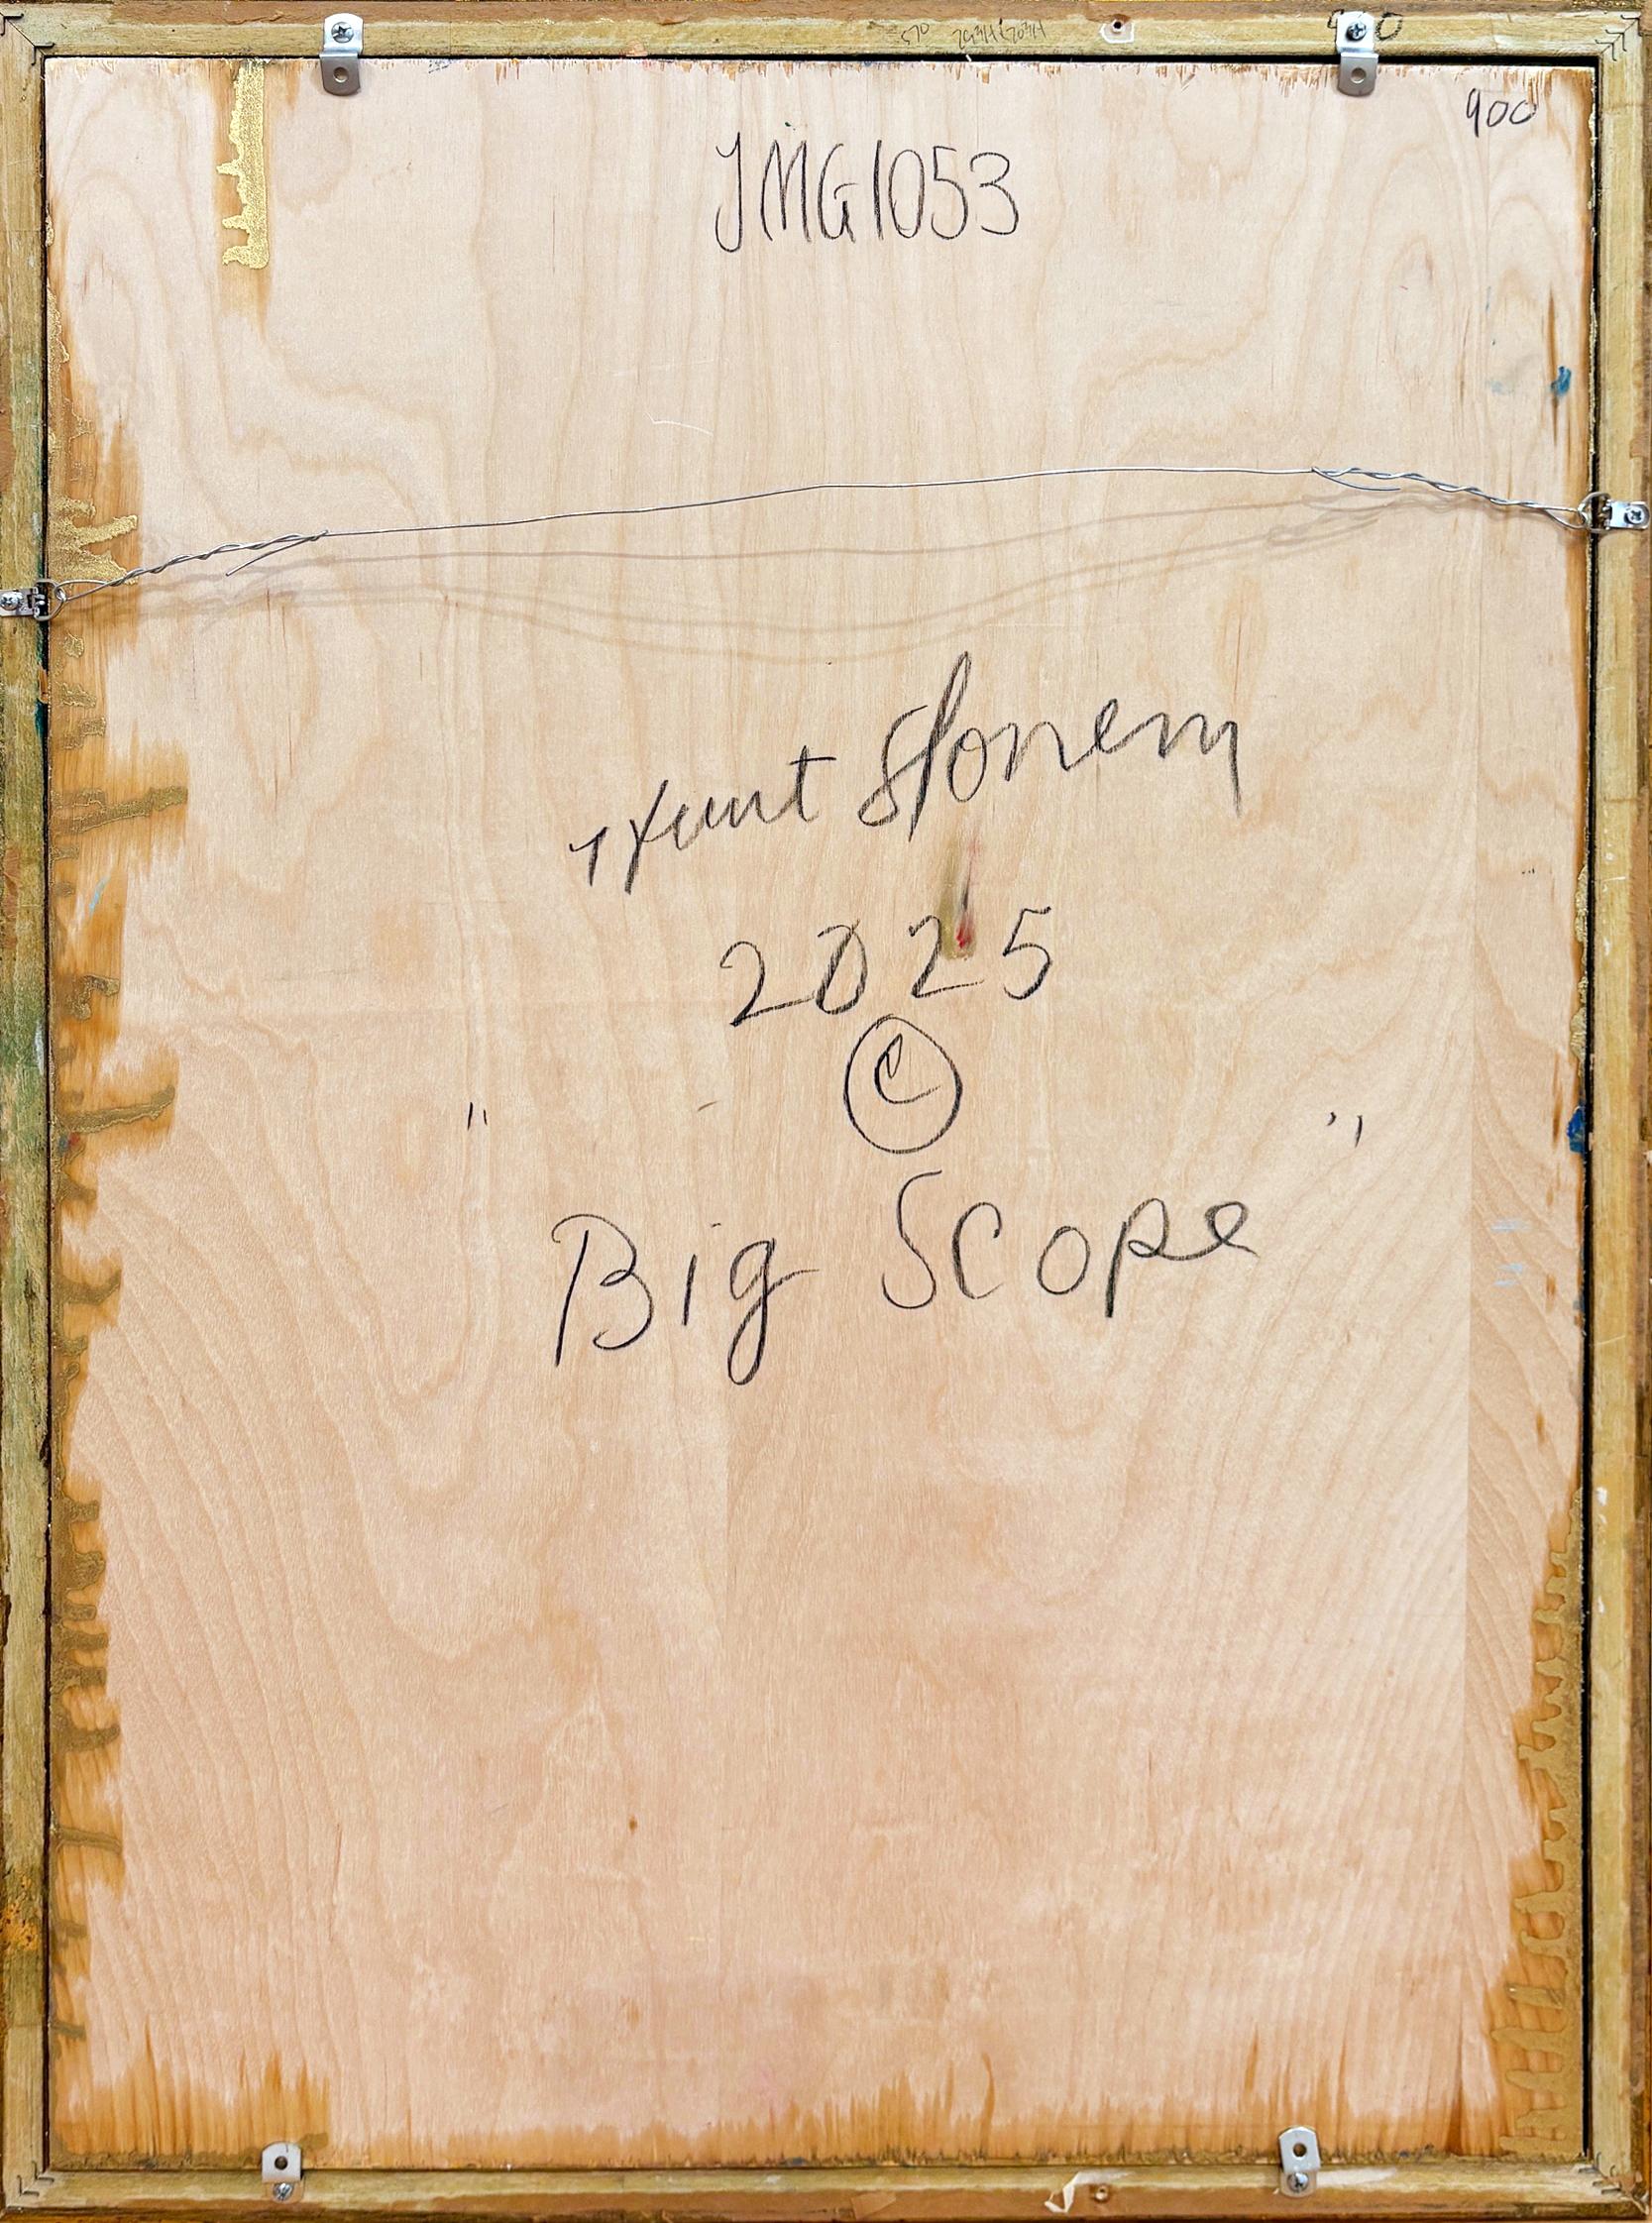 900
JMG1053
Hunt Slonem
2025
©
" "
Big Scope